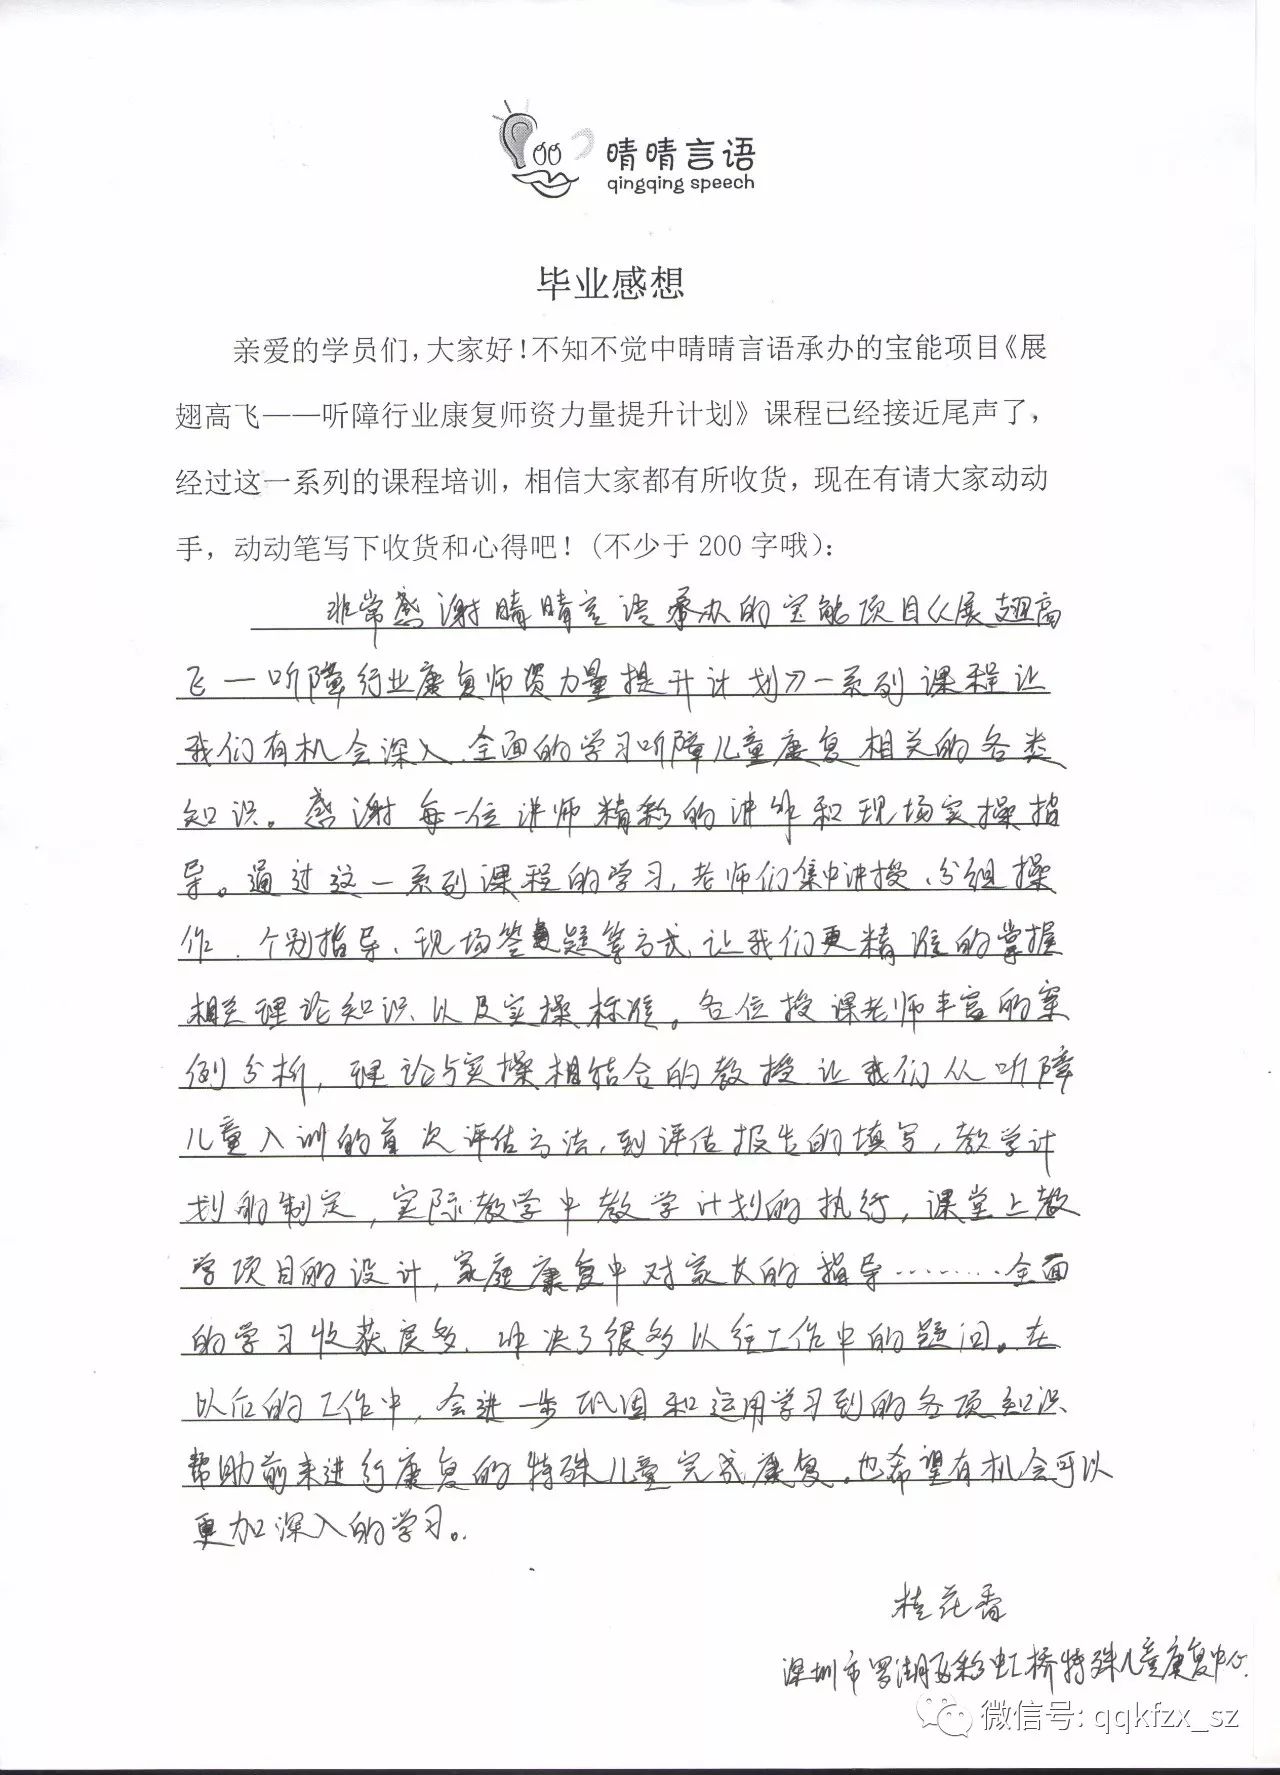 晴晴言语
qingqing speech
毕业感想
亲爱的学员们，大家好！不知不觉中晴晴言语承办的宝能项目《展
翅高飞——听障行业康复师资力量提升计划》课程已经接近尾声了，
经过这一系列的课程培训，相信大家都有所收货，现在有请大家动动
手，动动笔写下收货和心得吧！(不少于 200 字哦)：
非常感谢晴晴言语承办的宝能项目《展翅高
飞一听障行业康复师资力量提升计划》一系列课程让
我们有机会深入、全面的学习听障儿童康复相关的各类
知识。感谢每一位讲师精彩的讲解和现场实操指
导。通过这一系列课程的学习，老师们集中讲授、分组操
作、个别指导、现场答题等方式、让我们更精准的掌握
相关理论知识以及实操标准。各位授课老师丰富的案
例分析，理论与实操相结合的教授让我们从听障
儿童入训的首次评估方法，到评估报告的填写，教学计
划的制定，实际教学中教学计划的执行，课堂上教
学项目的设计，家庭康复中对家长的指导………全面
的学习收获良多、解决了很多以往工作中的题问。在
以后的工作中，会进一步巩固和运用学习到的各项知识
帮助前来进行康复的特殊儿童完成康复。也希望有机会可以
更加深入的学习。
桂花香
深圳市罗湖区彩虹桥特殊儿童康复中心
微信号: qqkfzx_sz